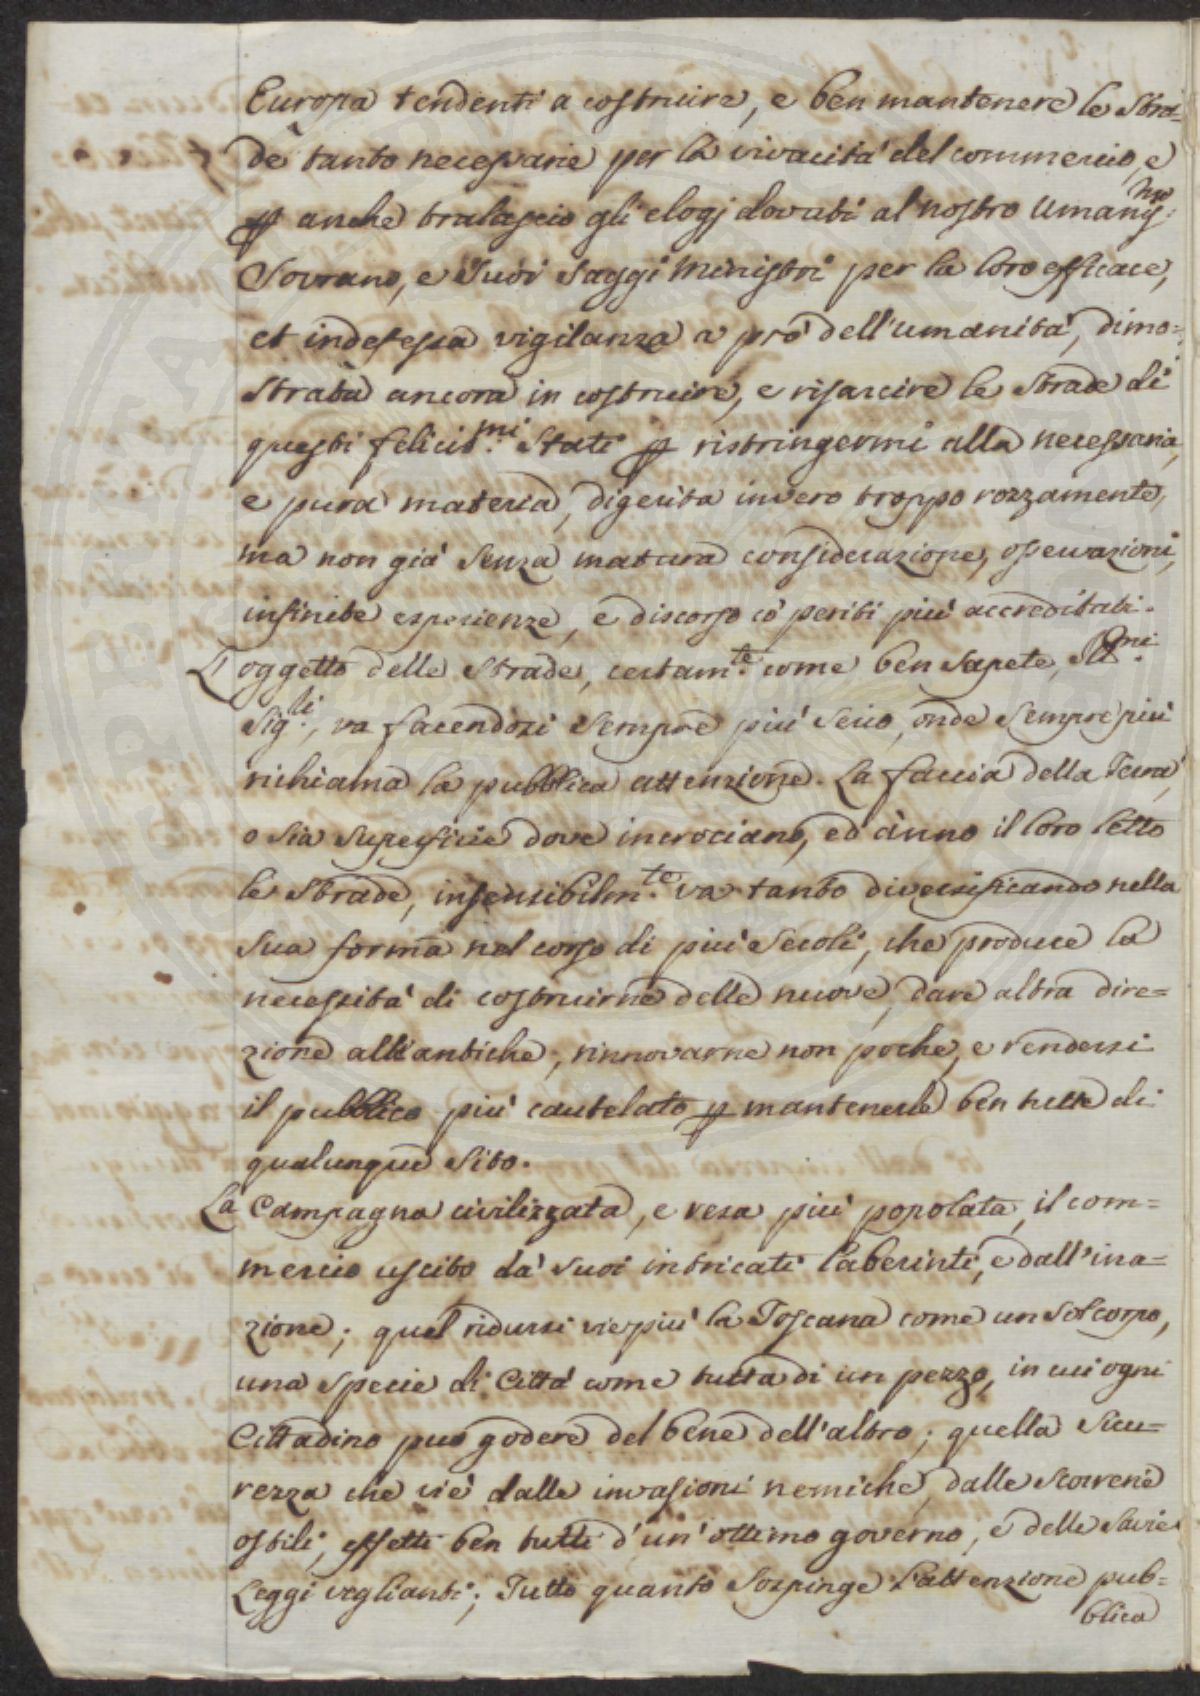 Europa tendenti a costruire, e ben mantenere le Stra-
de tanto necessarie per la vivacità del commercio, e
p anche tralascio gli elogj dovuti al nostro Umaniss:mo
Sovrano, e Suoi Saggi Ministri per la loro efficace,
et indefessa vigilanza a prò dell'umanità, dimo=
strata ancora in costruire, e risarcire le Strade di
questi felicis:mi Stati p ristringermi alla necessaria,
e pura materia, digerita invero troppo rozzamente,
ma non già senza matura considerazione, osservazioni,
infinite esperienze, e discorso cò periti più accreditati.
L'oggetto delle Strade, certam:te come ben sapete, Ill:mi
Sig:li, va facendosi sempre più serio, onde sempre più
richiama la pubblica attenzione. La faccia della Terra,
o sia superficie dove incrociano, ed ànno il loro letto
le Strade, insensibilm:te va tanto diversificando nella
sua forma nel corso di più Secoli, che produce la
necessità di costruirne delle nuove, dare altra dire=
zione alle antiche, rinnovarne non poche, e rendersi
il pubblico più cautelato p mantenerle ben tutte di
qualunque sito.
La Campagna civilizzata, e resa più popolata, il com=
mercio uscito da' suoi intricati laberinti, e dall'ina=
zione; quel ridursi viepiù la Toscana come un sol corpo,
una specie di Città come tutta di un pezzo, in cui ogni
Cittadino può godere del bene dell'altro; quella Sicu=
rezza che vi è dalle invasioni nemiche, dalle scorrerie
ostili, effetti ben tutti d'un'ottimo governo, e delle Savie
Leggi veglianti; Tutto quanto sospinge l'attenzione pub=
blica